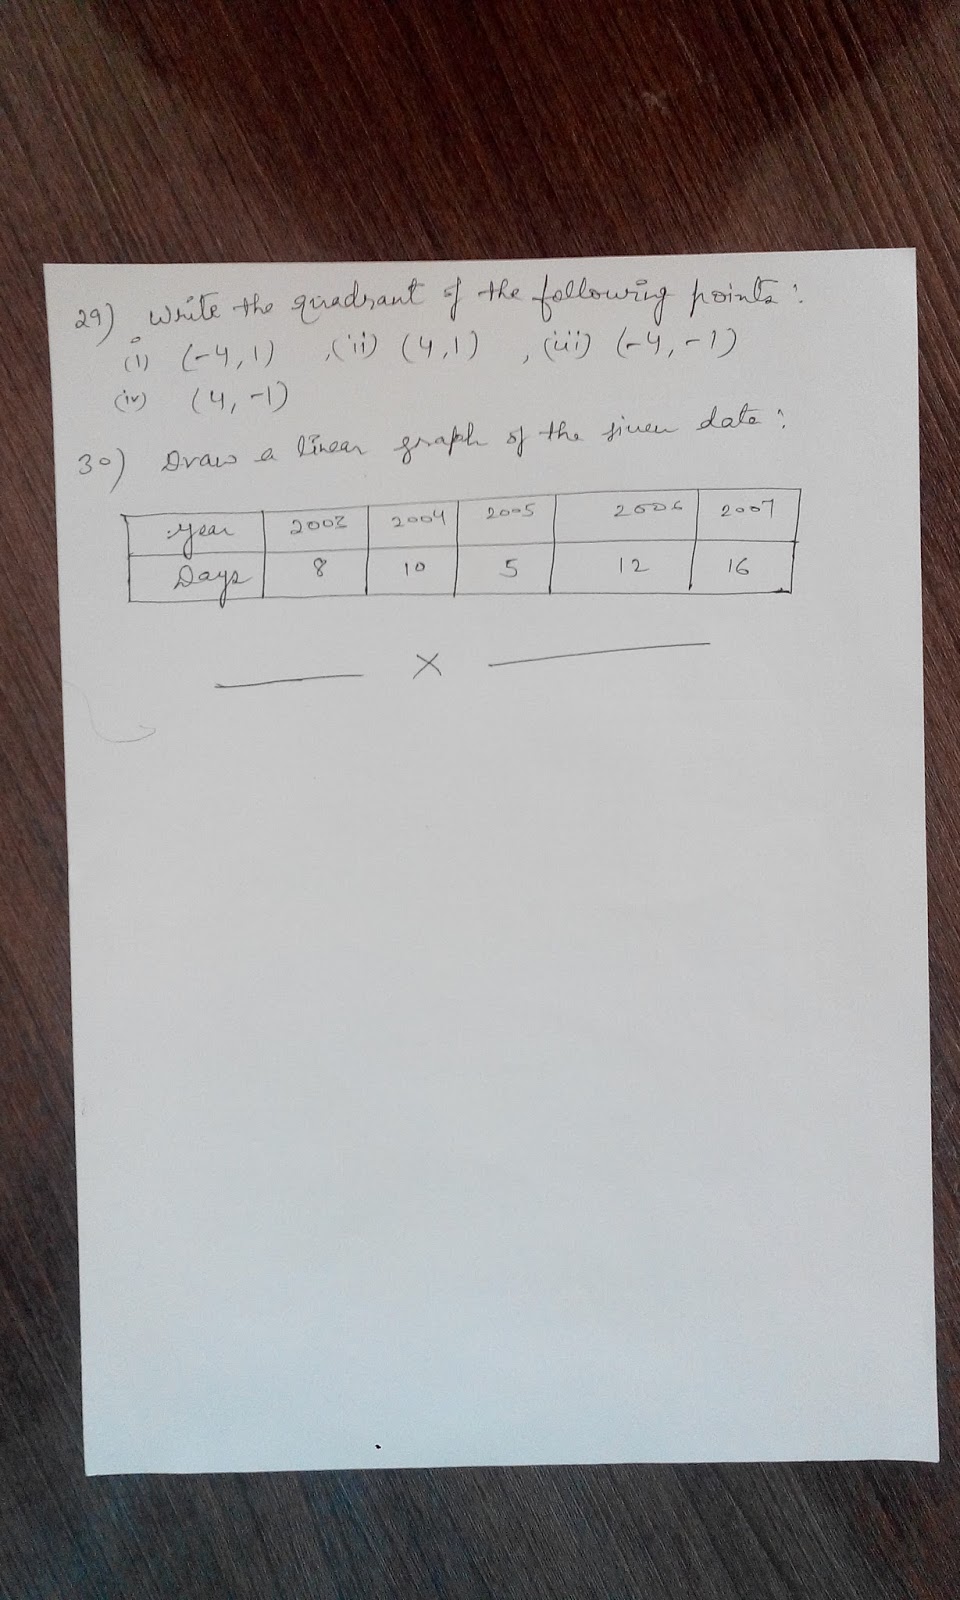 29) Write the quadrant of the following points:
(i) (-4,1) , (ii) (4,1) , (iii) (-4,-1)
(iv) (4,-1)
30) Draw a linear graph of the given data:
Year 2003 2004 2005 2006 2007
Days 8 10 5 12 16
X